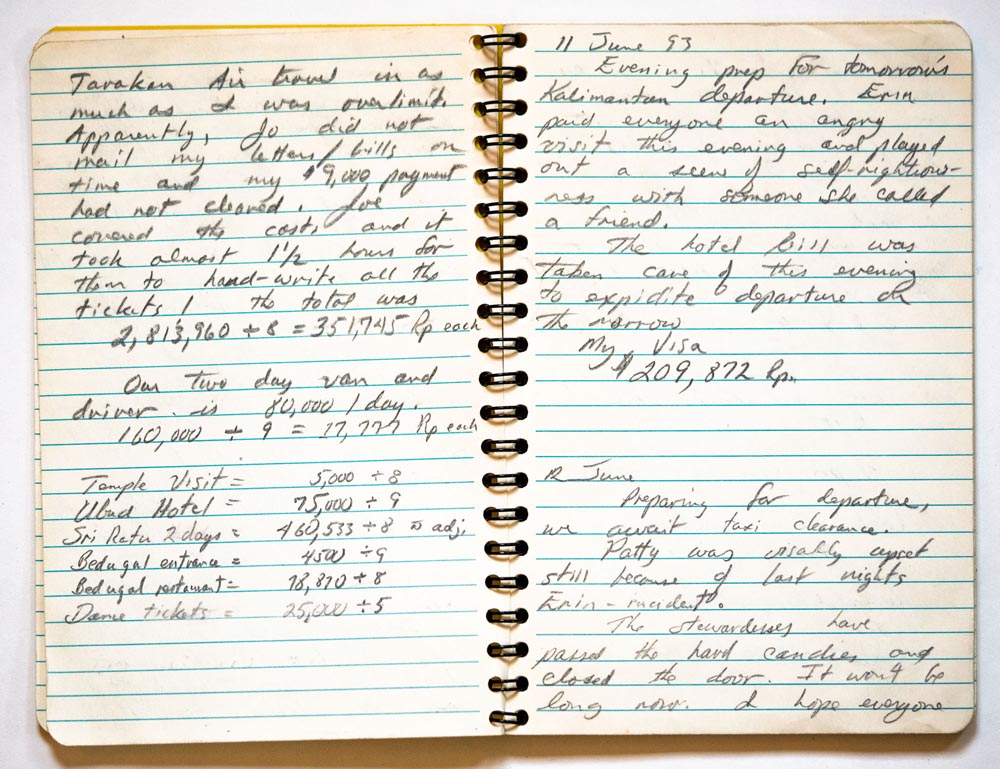 Tarakan Air travel in as
much as I was overlimit.
Apparently, Jo did not
mail my letters/bills on
time and my $9,000 payment
had not cleared. Joe
covered the costs and it
took almost 1 1/2 hours for
them to hand-write all the
tickets! the total was
2,813,960 ÷ 8 = 351,745 Rp each
Our two day van and
driver is 80,000 / day.
160,000 ÷ 9 = 17,777 Rp each
Temple Visit = 5,000 ÷ 8
Ubud Hotel = 75,000 ÷ 9
Sri Ratu 2 days = 460,533 ÷ 8 adj.
Bedugal entrance = 4500 ÷ 9
Bedugal restaurant = 78,870 ÷ 8
Dance tickets = 25,000 ÷ 5
11 June 93
Evening prep for tomorrow's
Kalimantan departure. Erin
paid everyone an angry
visit this evening and played
out a scene of self-rightious-
ness with someone she called
a friend.
The hotel bill was
taken care of this evening
to expidite departure on
the morrow
My Visa
$209,872 Rp.
12 June
Preparing for departure,
we await taxi clearance.
Patty was visably upset
still because of last nights
Erin-incident.
The stewardesses have
passed the hard candies and
closed the door. It won't be
long now. I hope everyone